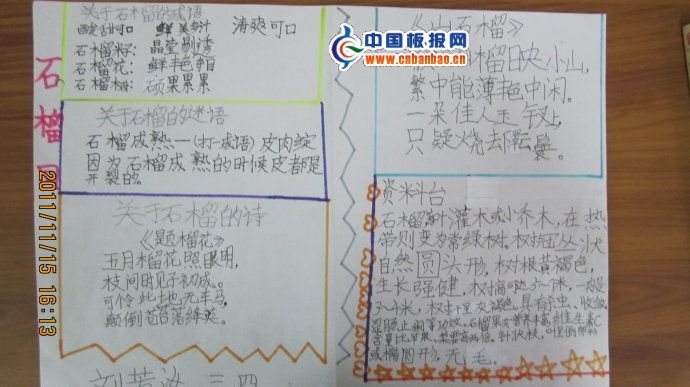 关于石榴的成语
酸甜可口 鲜美多汁 清爽可口
石榴籽: 晶莹剔透
石榴花: 鲜丰色丰目
石榴树: 硕果累累
石榴
关于石榴的谜语
石榴成熟一(打一成语)皮肉绽
因为石榴成熟的时候皮都是
开裂的。
关于石榴的诗
《题榴花》
五月榴花照眼明,
枝间时见子初成。
可怜此地无车马,
颠倒苍苔落绛英。
三四
《山石榴》
榴日央小山,
繁中能薄艳中闲。
一朵佳人玉钗上,
只疑烧却翠鬟。
资料台
石榴为落叶灌木或小乔木,在热
带则变为常绿树。树冠丛状
自然圆头形。树根黄褐色,
生长强健,
或椭圆形,无毛。
中国板报网
www.cnbanbao.cn
2011/11/15 16:13